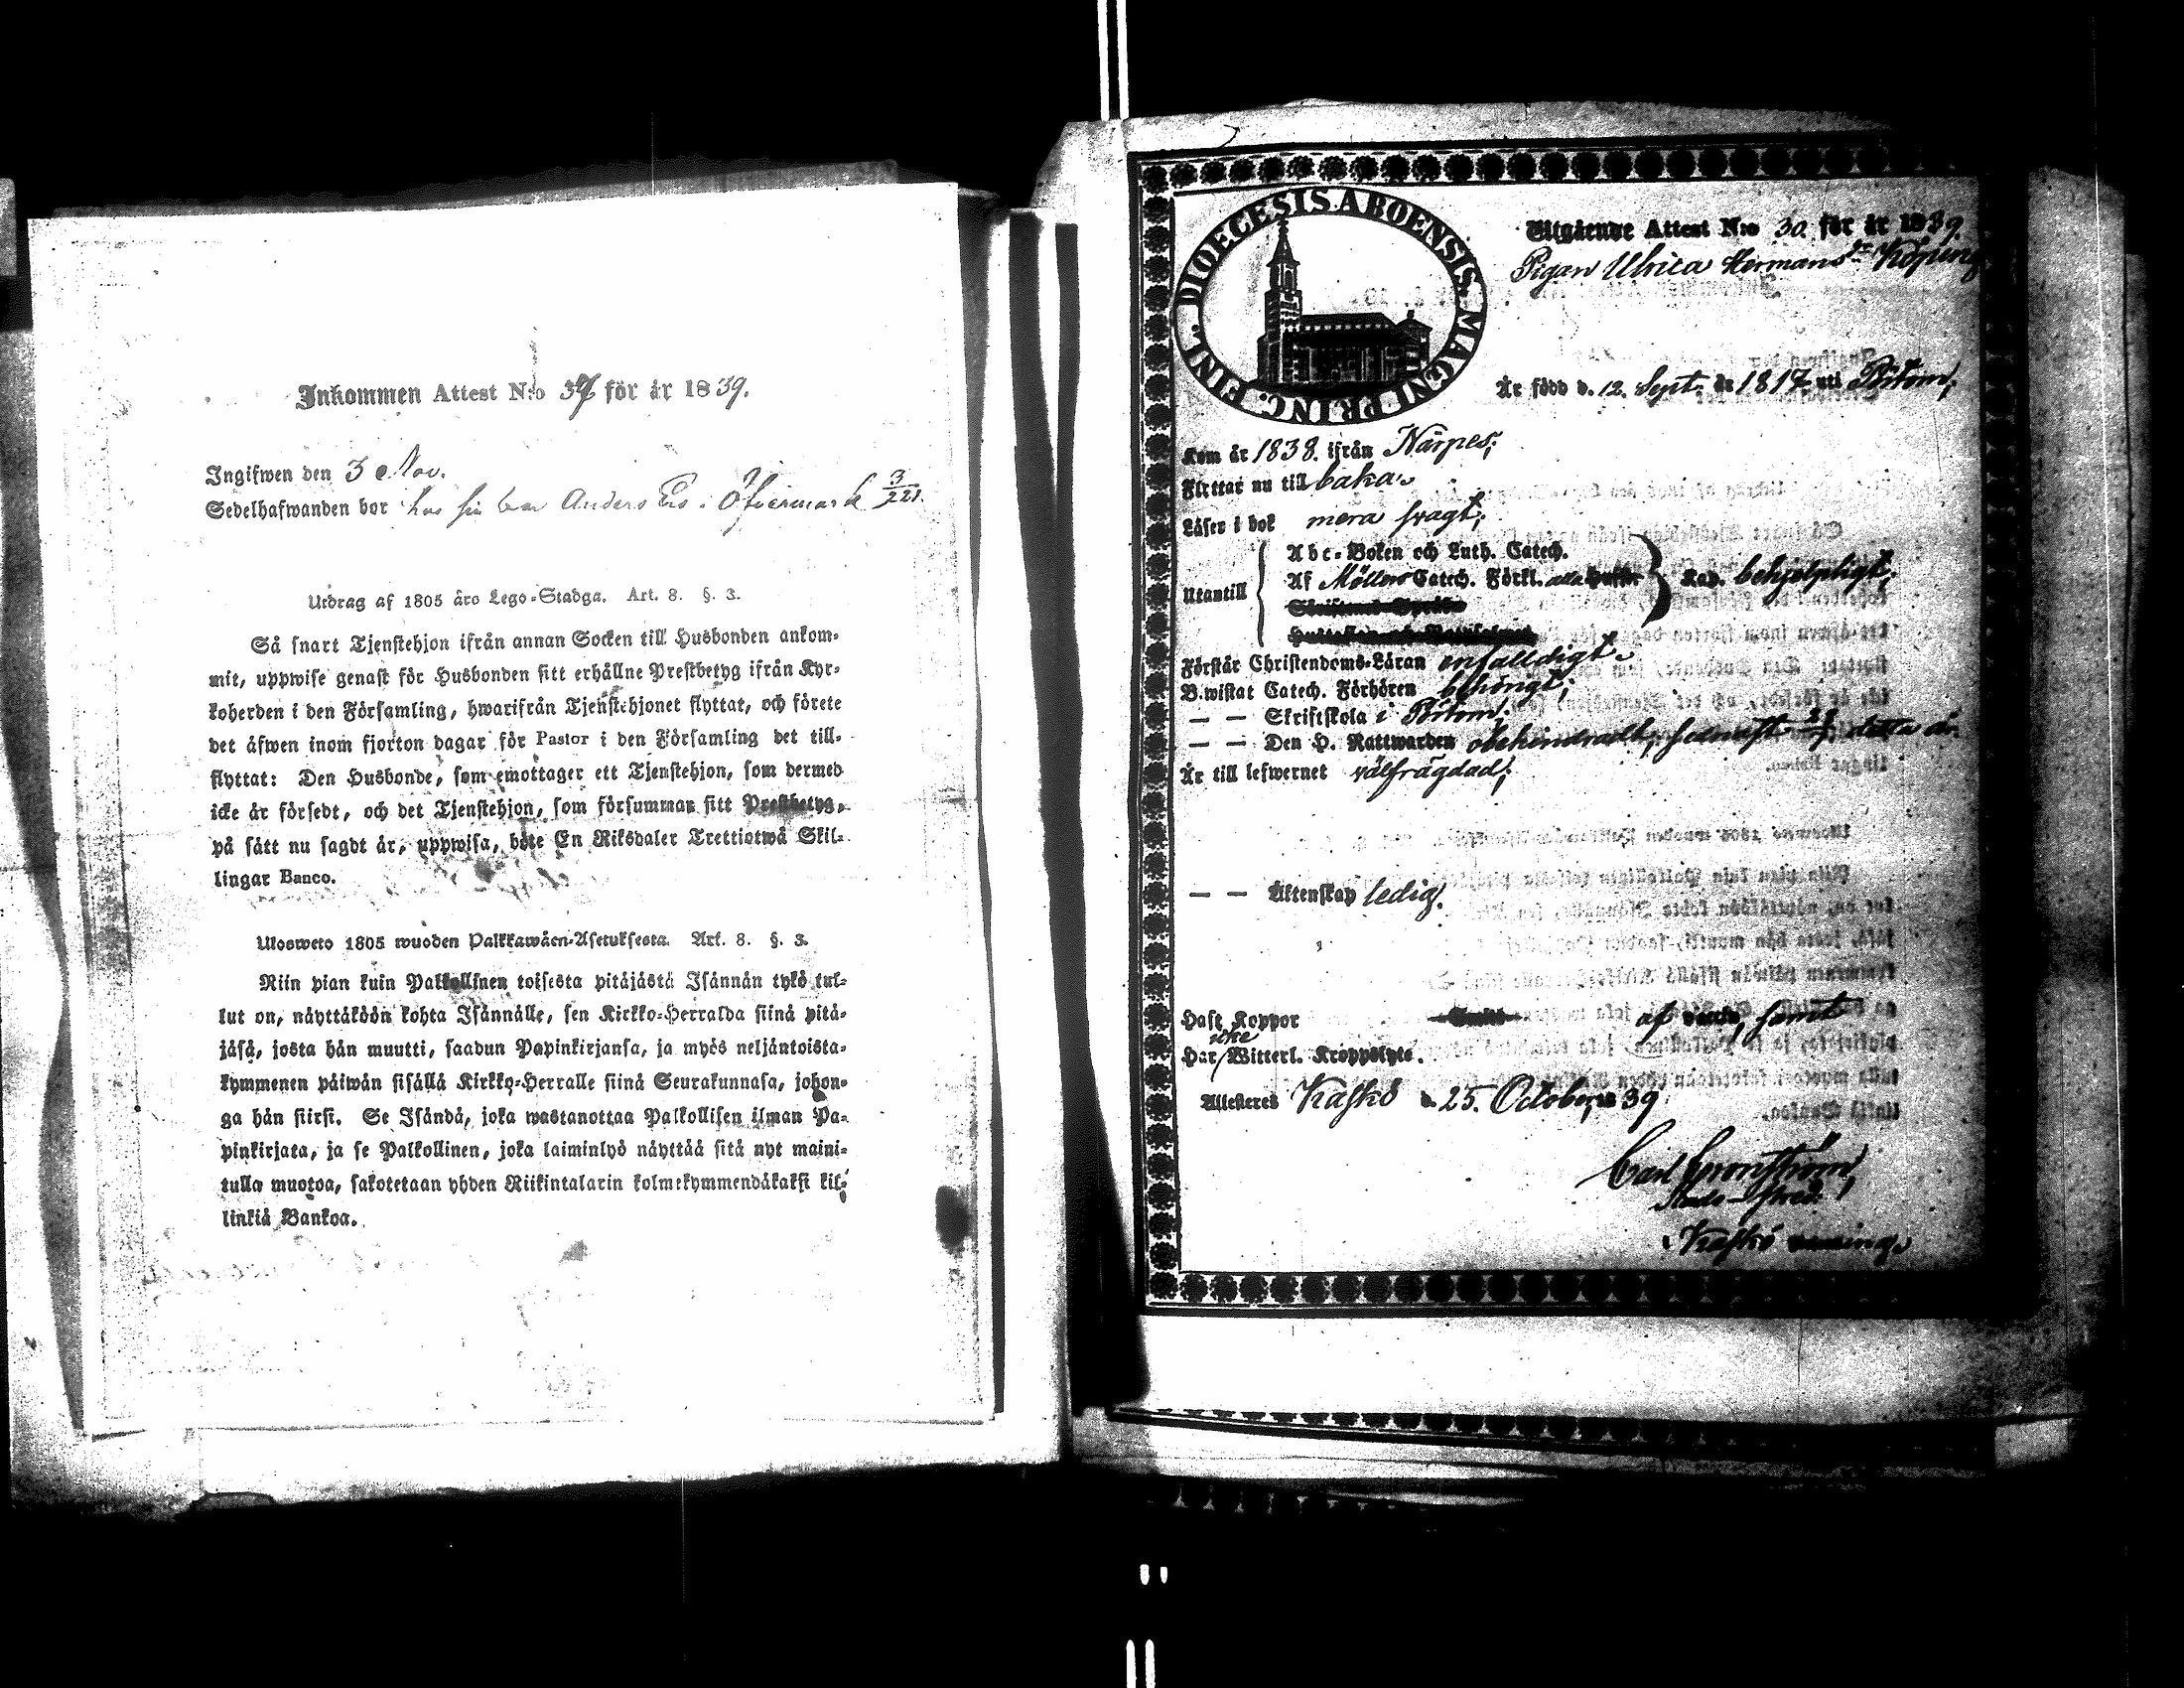 Inkommen Attest N:o 37 för år 1839.
Ingifwen den 3 Nov.
Sedelhafwanden bor hos sin bror Anders Ers. i Öfvermark 3/221.
Utdrag af 1805 års Lego-Stadga. Art. 8. §. 3.
Så snart Tjenstehjon ifrån annan Socken till Husbonden ankom-
mit, uppwise genast för Husbonden sitt erhållne Prestbetyg ifrån Kyr-
koherden i den Församling, hwarifrån Tjenstehjonet flyttat, och förete
det åfwen inom fjorton dagar för Pastor i den Församling det till-
flyttat: Den Husbonde, som emottager ett Tjenstehjon, som dermed
icke år försedt, och det Tjenstehjon, som försummar sitt Prestbetyg,
på sått nu sagdt år, uppwisa, böte En Riksdaler Trettiotwå Skil-
lingar Banco.
Ulosweto 1805 wuoden Palkkawåen-Asetuksesta. Art. 8. §. 3.
Niin pian kuin Palkollinen toisesta pitåjåstå Isånnån tykö tul-
lut on, nåyttåköön kohta Isånnålle, sen Kirkko-Herralda siinå pitå-
jåså, josta hån muutti, saadun Papinkirjansa, ja myös neljäntoista-
kymmenen påiwån sisållå Kirkko-Herralle siinå Seurakunnasa, johon-
ga hån siirsi. Se Isåndå, joka wastanottaa Palkollisen ilman Pa-
pinkirjata, ja se Palkollinen, joka laiminlyö nåyttåå sitå nyt maini-
tulla muotoa, sakotetaan yhden Riikintalarin kolmekymmendåkaksi kil-
linkiå Bankoa.
DIOECESIS ABOENSIS. MAGNI PRINC. FINL.
Utgående Attest N:o 30. för år 1839.
Pigan Ulrica Hermans dr Köping
År född d. 12. Sept. år 1817 uti Pörtom;
Kom år 1838. ifrån Närpes;
Flyttar nu till baka.
Låser i bok mera svagt;
Utantill
Abc-Boken och Luth. Catech.
Af Möllers Catech. Förkl. alla
Kap. behjelpligt;
Förstår Christendoms-Låran enfalldigt.
Bewistat Catech. Förhören behörigt;
— — Skriftskola i Pörtom;
— — Den H. Nattwarden obehindradt, sednast detta år.
År till lefwernet välfrägdad;
— — Åktenskap ledig.
Haft Koppor af samt
Har icke Witterl. Kroppslyte.
Attesteres Kaskö d. 25. October 1839
Carl Grönström,
Kaskö